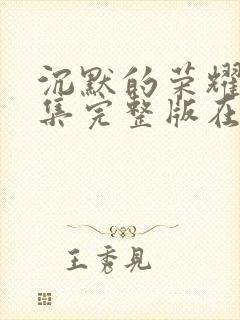 沉默的荣耀
集完整版在
王秀见